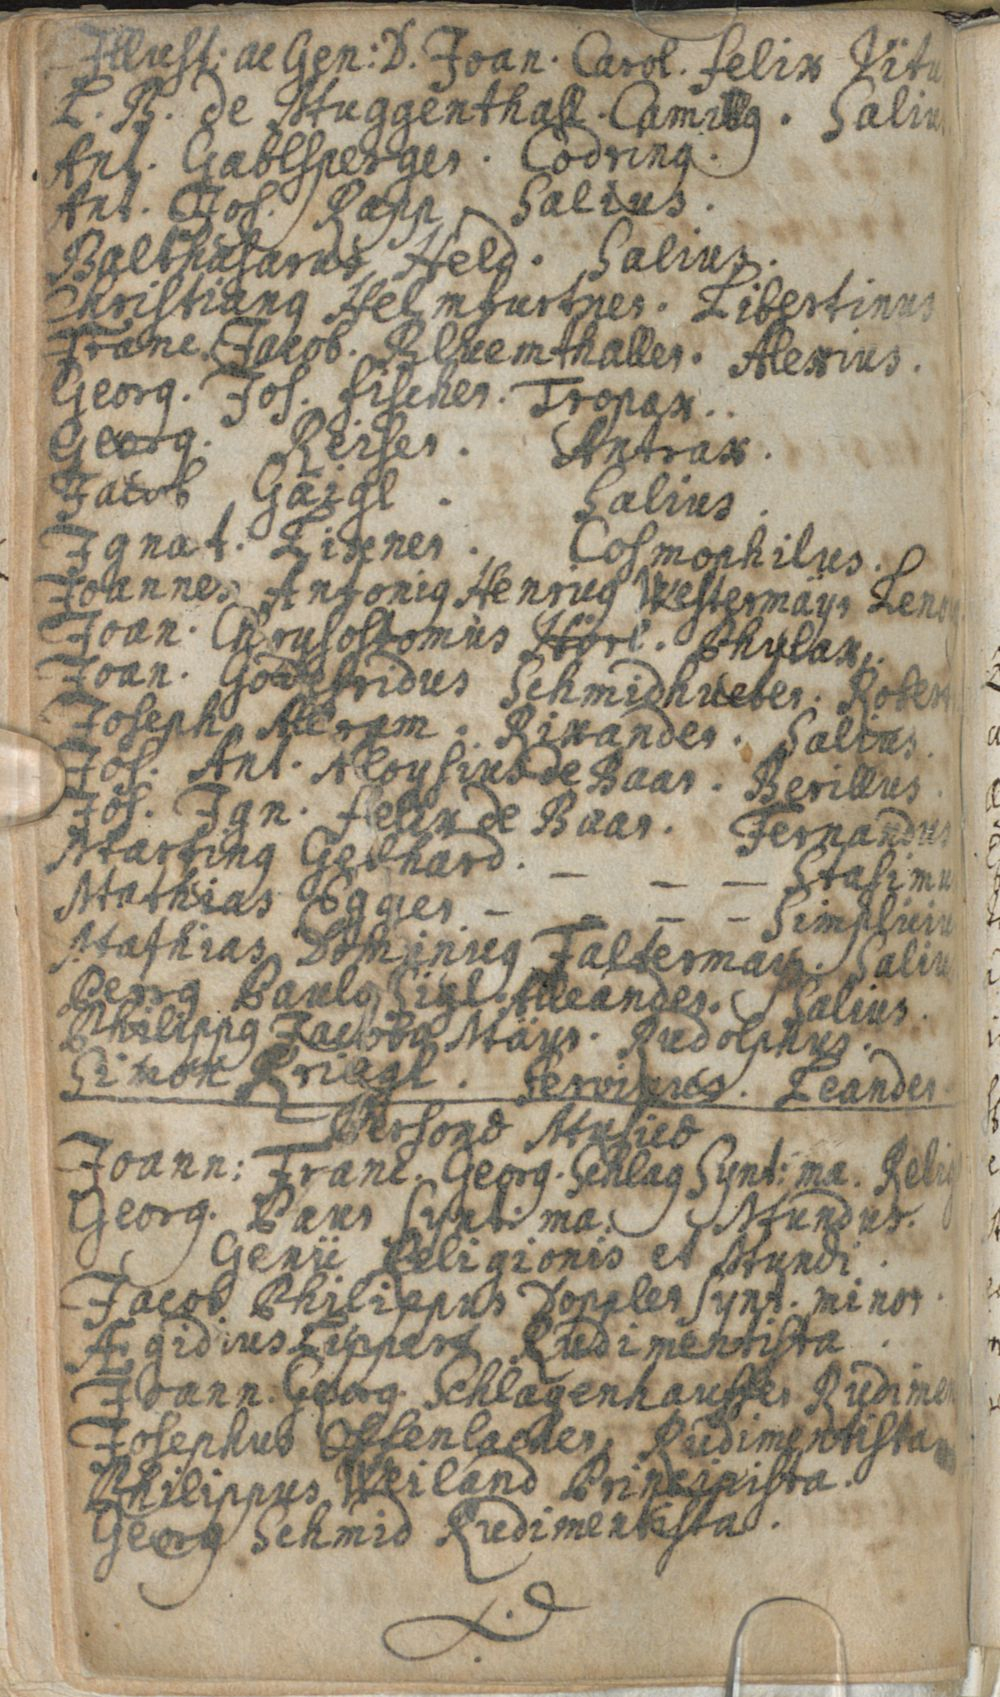 Illust: ac Gen: D. Joan. Carol. felix Vitu
L. B. de Muggenthall. Camillg. Saliu
Ant. Gablsperger. Codring.
Ant. Jos. Rapp. Salius.
Balthasarus Held. Salius.
Christiang Helmfurtner. Libertinus
Franc. Jacob. Bluemthaller. Alexius.
Georg. Jos. fischer. Tropax..
Georg. Reiser. Antrax.
Jacob Gäigl. Salius.
Ignat. Lixner. Cosmophilus.
Joannes Antonig Henricg Westermäyr Len
Joan. Chrysostomus Hörl. Phylax.
Joan. Godefridus Schmidhueber. Rober
Joseph. Meram. Rixander. Salius.
Jos. Ant. Aloysius de Baar. Berillus.
Jos. Ign. felix de Baar. Fernandus
Marting Gebhard. _ _ _ Stasimu
Mathias Egger - - - - Simpliciu
Mathias Dominicg Faltermayr. Saliu
Petrg Paulg Sigl. Alleander. Salius.
Philippg Jacobg Mäyr. Rudolphus.
Simon Kriegl. Leander.
Personæ Musicæ
Joann: Franc. Georg. Schlag Synt: ma. Relig
Georg. Paur Synt: ma: Mundus.
Genii Religionis et Mundi.
Jacob Philippus Doppler Synt. minor.
Ægidius Lippert Rudimentista.
Joann. Georg. Schlagenhauffer Rudimen
Josephus Rudimentista
Philippus Weiland Principista.
Georg Schmid Rudimentista.